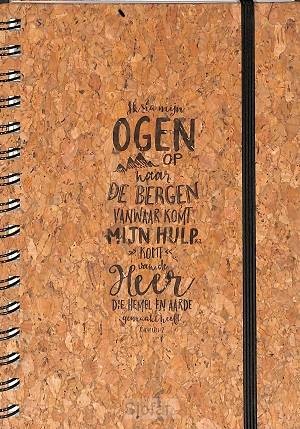 Ik sla mijn
OGEN
OP
naar
DE BERGEN
VANWAAR KOMT
MIJN HULP
KOMT
van de
Heer
DIE HEMEL EN AARDE
gemaakt heeft